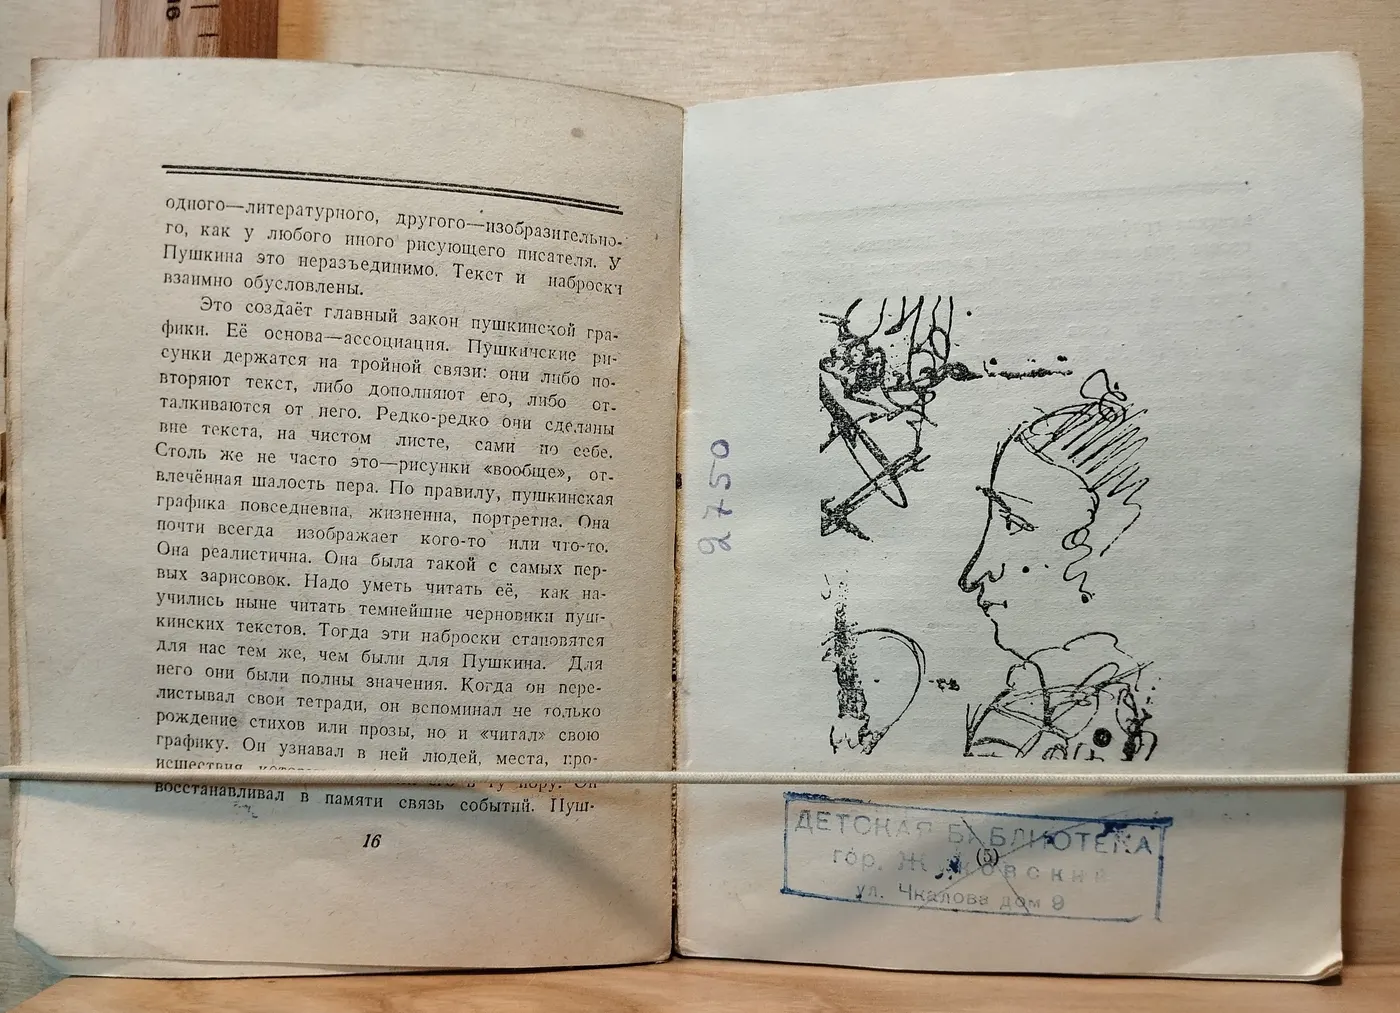 одного—литературного, другого—изобразительно-
го, как у любого иного рисующего писателя. У
Пушкина это неразъединимо. Текст и наброски
взаимно обусловлены.
Это создаёт главный закон пушкинской гра-
фики. Её основа—ассоциация. Пушкинские ри-
сунки держатся на тройной связи: они либо по-
вторяют текст, либо дополняют его, либо от-
талкиваются от него. Редко-редко они сделаны
вне текста, на чистом листе, сами по себе.
Столь же не часто это—рисунки «вообще», от-
влечённая шалость пера. По правилу, пушкинская
графика повседневна, жизненна, портретна. Она
почти всегда изображает кого-то или что-то.
Она реалистична. Она была такой с самых пер-
вых зарисовок. Надо уметь читать её, как на-
учились ныне читать темнейшие черновики пуш-
кинских текстов. Тогда эти наброски становятся
для нас тем же, чем были для Пушкина. Для
него они были полны значения. Когда он пере-
листывал свои тетради, он вспоминал не только
рождение стихов или прозы, но и «читал» свою
графику. Он узнавал в ней людей, места, про-
исшествия в ту пору. Он
восстанавливал в памяти связь событий. Пуш-
16
2750
ДЕТСКАЯ БИБЛИОТЕКА
(5)
гор. Жуковский
ул. Чкалова дом 9